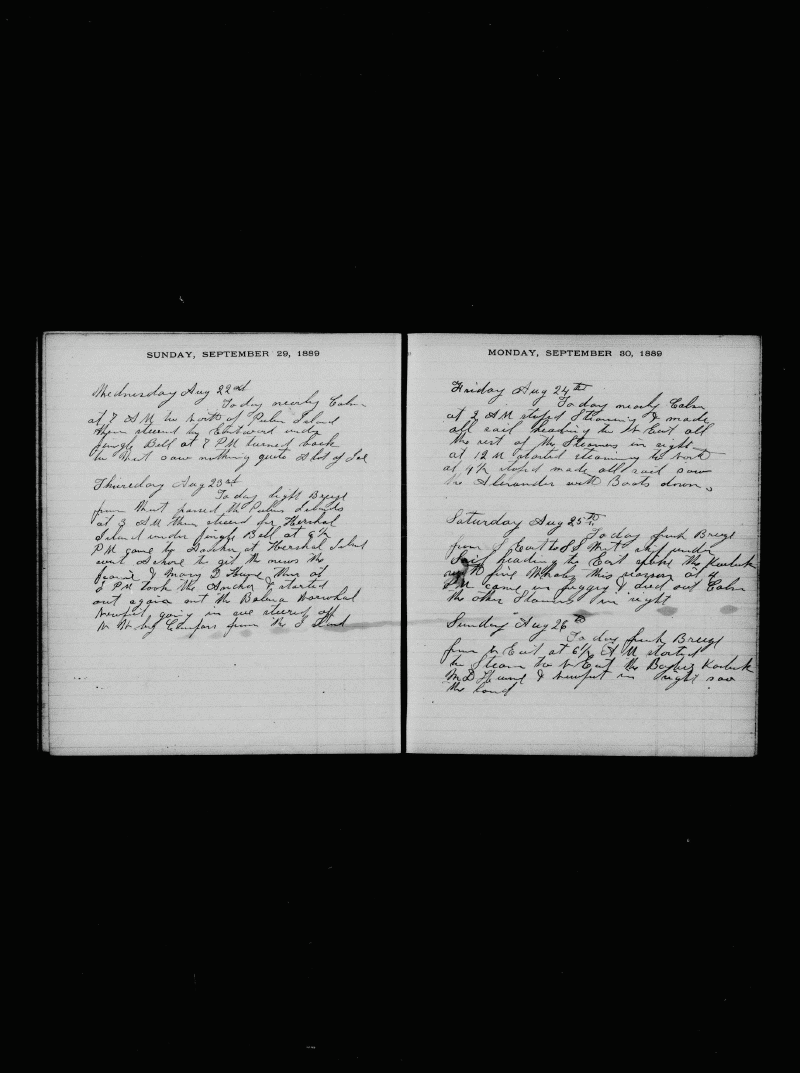 SUNDAY, SEPTEMBER 29, 1889
Wednesday Aug 22nd
To day nearly Calm
at 7 AM to North of Pulin Island
then steered by Eastward under
Jingle Bell at 7 PM turned back
to West saw nothing quite a lot of Ice
Thursday Aug 23rd
To day light Breeze
from West passed the Pulin Islands
at 3 AM then steered for Hershal
Island under Jingle Bell at 9½
PM came to Anchor at Hershal Island
went Ashore to git the news the
& Mary D Hume then at
PM took the Anchor & started
out again out the Balena Norwhal
Newport going in we steered off
N W by Compass from the Island
MONDAY, SEPTEMBER 30, 1889
Friday Aug 24th
To day nearly Calm
at 2 AM stoped Steaming & made
all sail heading to N East all
the rest of the Steamers in sight
at 12 M started steaming to North
at 4½ stoped made all sail saw
the Alexander with Boats down
Saturday Aug 25th
To day fresh Breeze
from S East to S S West under
Sail heading to East spoke the Karluk
with five Whales this season at 4
PM came in foggy & died out Calm
the other Steamers in sight
Sunday Aug 26th
To day fresh Breeze
from N East at 6½ AM started
to Steam to N East the Karluk
M D Hume & Newport in sight saw
the land